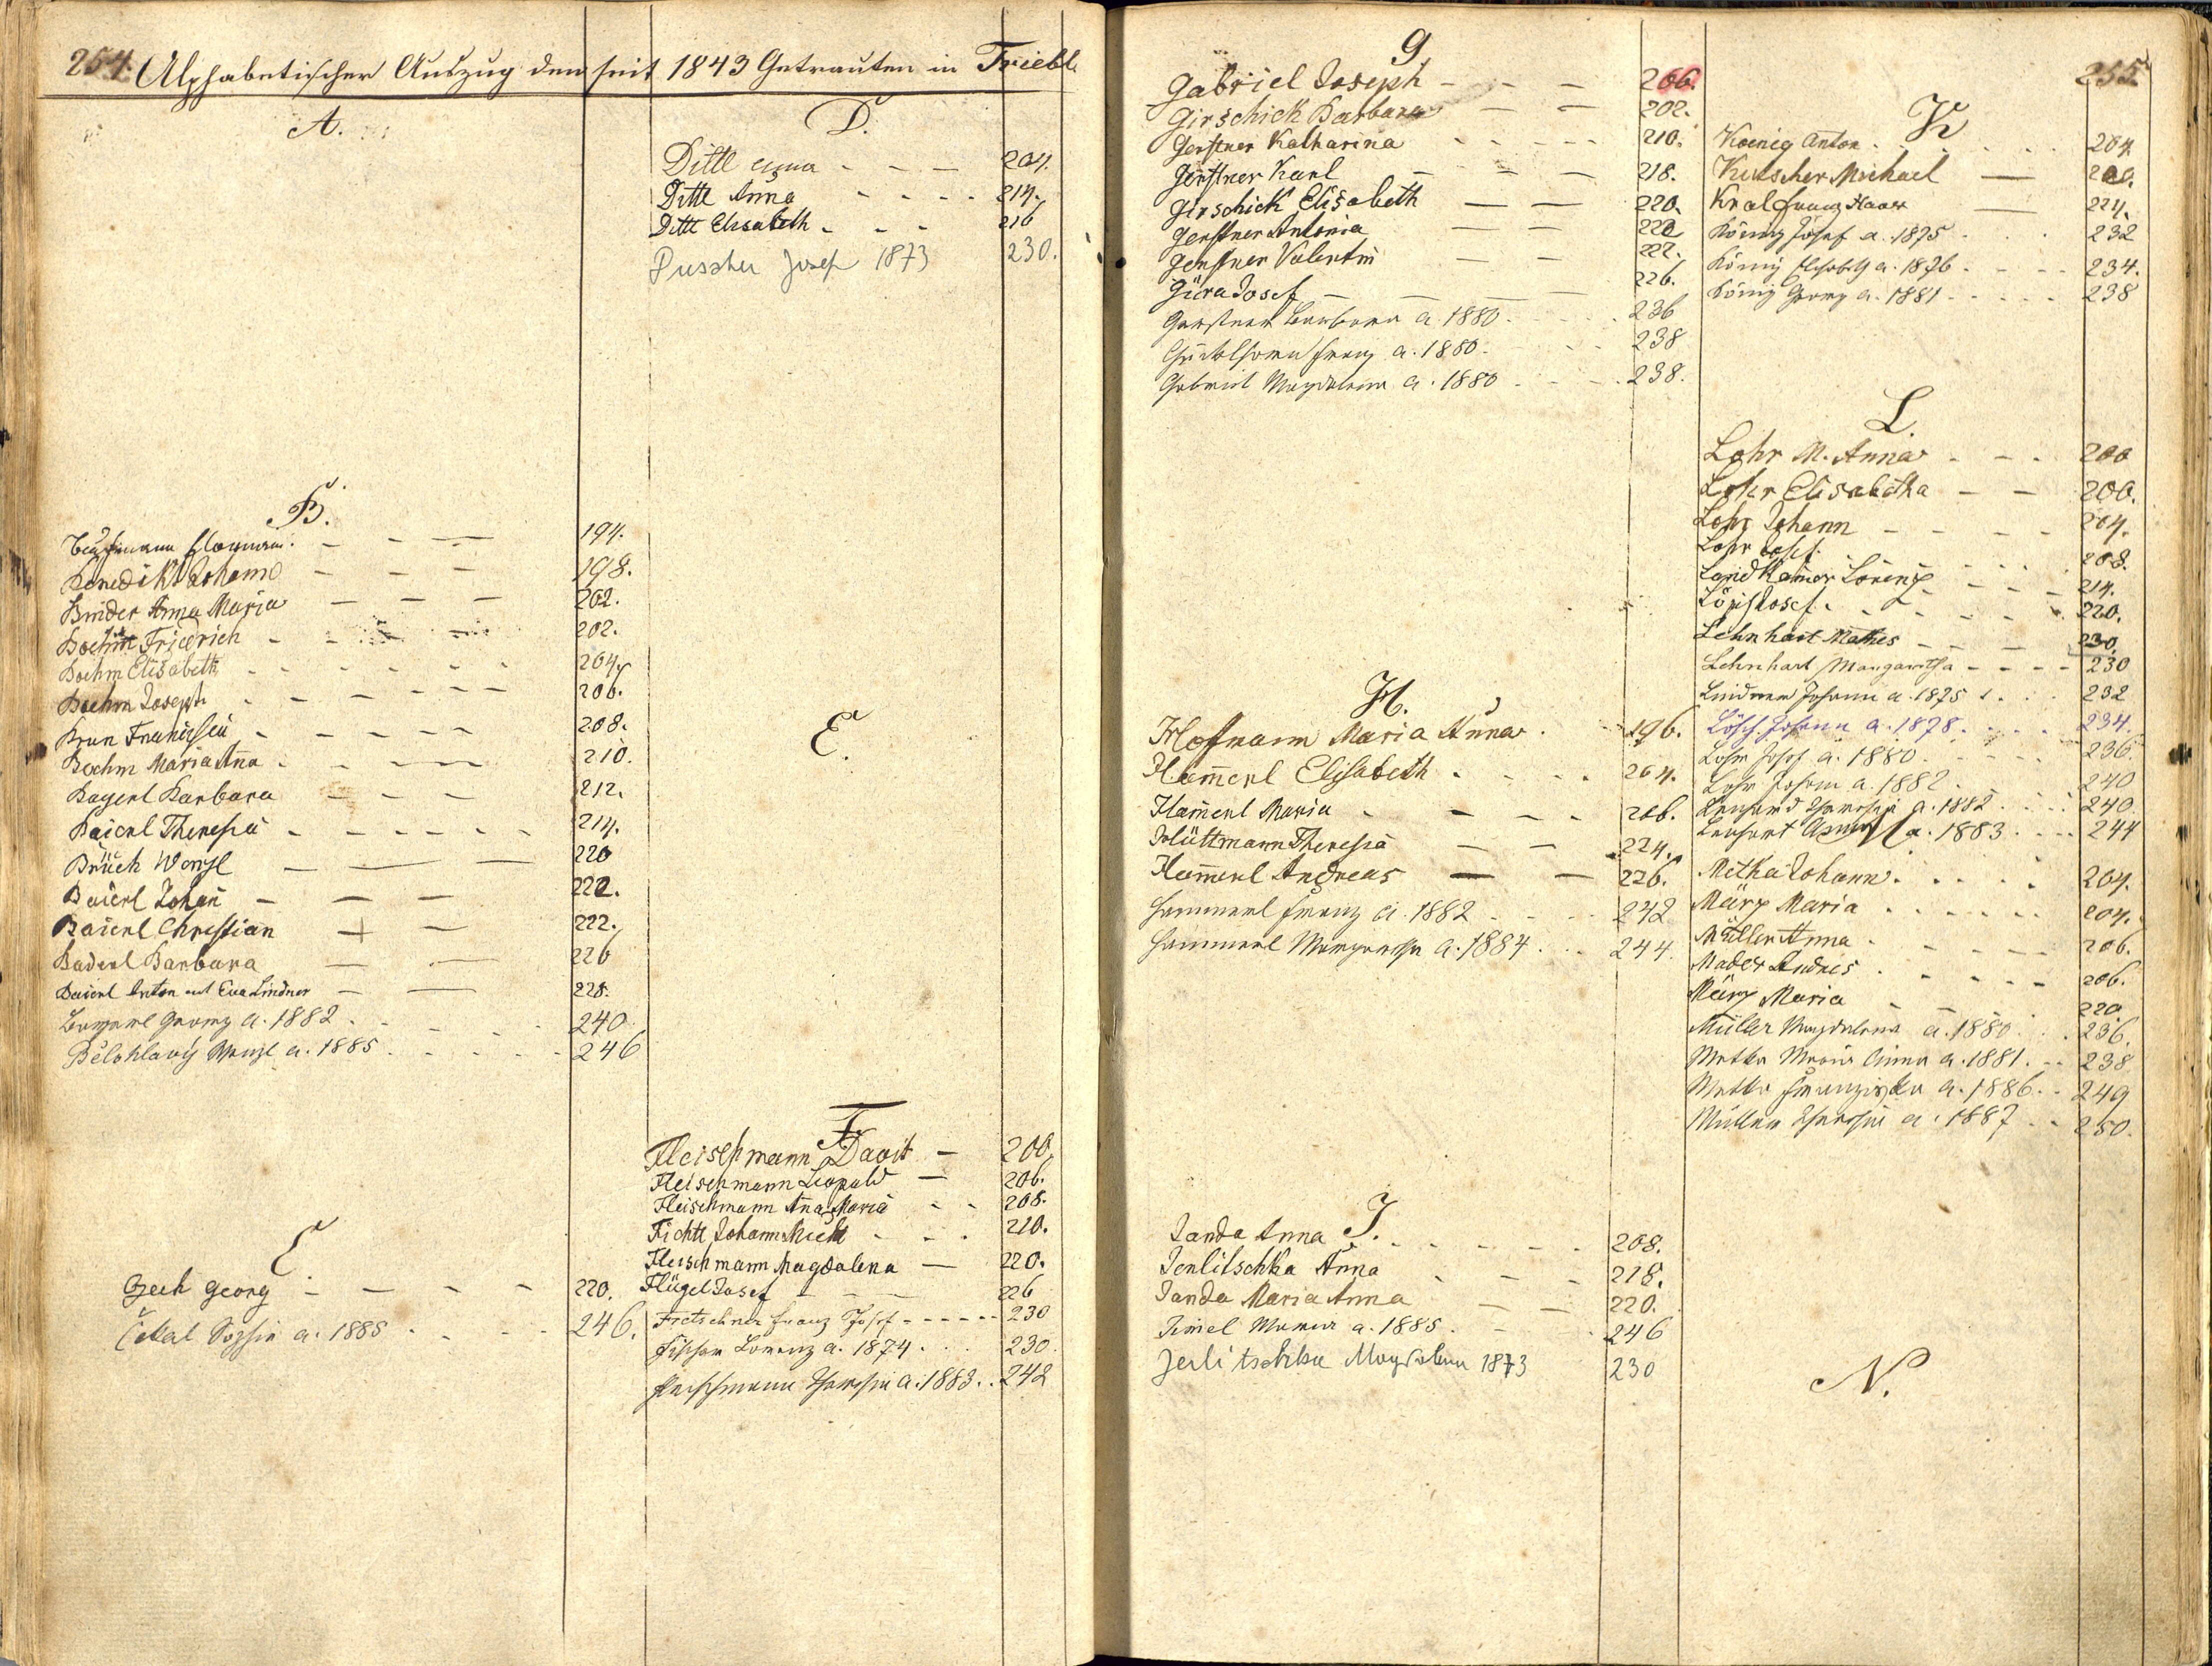 254. Alphabetischer Auszug der seit 1843 Getrauten in Triebl
A.
B.
194.
Benedikt Johann 198.
Binder Anna Maria 202.
Boehm Friedrich 202.
Boehm Elisabeth 204.
Boehm Joseph 206.
208.
Boehm Maria Ana 210.
Bayerl Barbara 212.
Baierl Theresia 214.
Brüch Wenzl 220
Baierl Johan 222.
Baierl Christian 222.
Baderl Barbara 226
Baierl Anton mit Eva Lindner 228.
Georg a. 1882 240
Bělohlavý Wenzl a. 1885 246
C.
Czech Georg 220.
Čekal a. 1885 246.
D.
Dittl Anna 204.
Dittl Anna 214.
Dittl Elisabeth 216
Josef 1873 230.
E.
F.
Fleischmann Davit 200.
Fleischmann Leopold 206.
Fleischmann Ana Maria 208.
Fichtl Johann 210.
Fleischmann Magdalena 220.
Flügel Josef 226
Fretschner Franz Josef 230
Fischer Lorenz a. 1874 230.
Fleischmann Theresia a. 1883 242
G
Gabriel Joseph 206.
Girschick Barbara 202.
Gerstner Katharina 210.
Gerstner Karl 218.
Girschick Elisabeth 220.
Gerstner Antonia 222
Gerstner Valentin 222.
Josef 226.
Gerstner Barbara a. 1880 236
Franz a. 1880 238
Gabriel Magdalena a. 1880 238.
H.
Hoffmann Maria Anna 196.
Ham̅erl Elisabeth 204.
Ham̅erl Maria 206.
Hüttmann Theresia 224.
Ham̅erl Andreas 226.
Hammerl Franz a. 1882 242
Hammerl Margaretha a. 1884 244.
J.
Janda Anna 208.
Jerlitschka Anna 218.
Janda Maria Anna 220.
a. 1885 246
Jerlitschka Magdalena 1873 230
255
K
Koenig Anton 204.
Kutscher Michael
Kral Franz 224.
König Josef a. 1875 232
König Elisabeth a. 1876 234.
König Georg a. 1881 238
L.
Lohr M. Anna 200
Lohr Elisabetha 200.
Lohr Johann 204.
Lohr Josef 208.
Landkamer Lorenz 214.
Josef 220.
Lehnhart Mathes 230.
Lehnhart Margaretha 230
Lindner Johann a. 1875 232
Lösch Johann a. 1878 234.
Lohr Josef a. 1880 236.
Lohr Johann a. 1882 240
Theresia a. 1882 240
a. 1883 244
Metka Johann 204.
Märp Maria 204.
Müller Anna 206.
Mader Andres 206.
Märp Maria 220
Müller Magdalena a. 1880 236.
Metka Maria Anna a. 1881 238
Metka Franziska a. 1886 249
Müller Theresia a. 1887 250.
N.